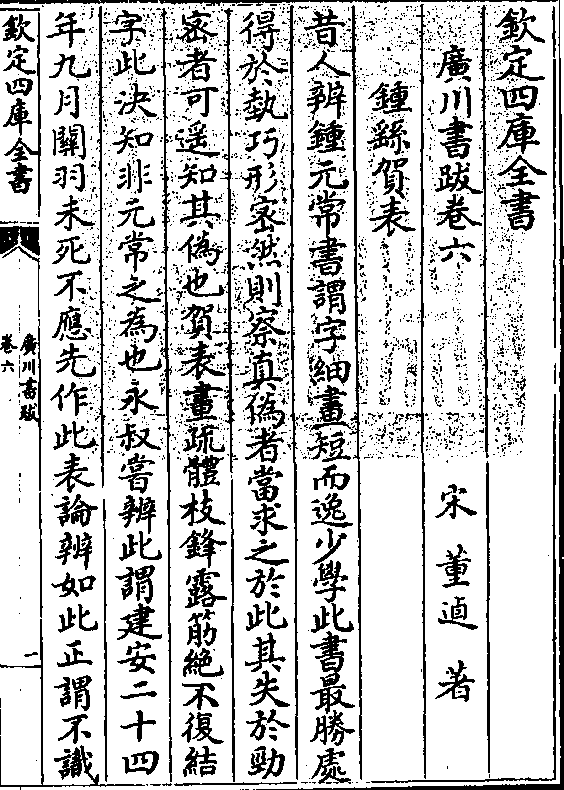 欽定四庫全書
廣川書跋卷六
宋 董逌 著
鍾繇賀表
昔人辨鍾元常書謂字細畫短而逸少學此書最勝處
得於埶巧形密然則察真偽者當求之於此其失於勁
密者可遥知其偽也賀表畫疏體枝鋒露筋絶不復結
字此決知非元常之為也永叔嘗辨此謂建安二十四
年九月關羽未死不應先作此表論辨如此正謂不識
欽定四庫全書
廣川書跋
卷六
一